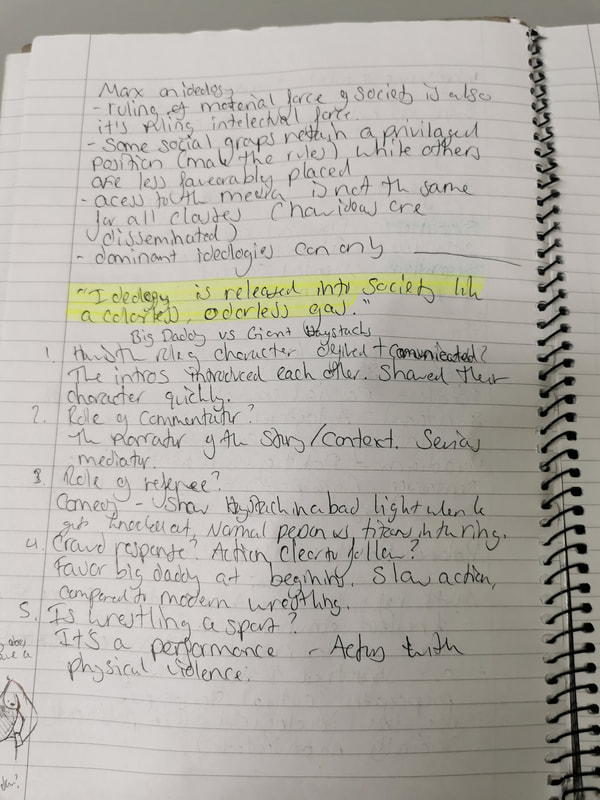 Marx on ideology
- ruling of material force of society is also
it's ruling intelectual force.
- Some social groups retain a privilaged
position (make the rules) while others
are less favourably placed
- acess to the media is not the same
for all classes (how ideas are
disseminated)
- dominant ideologies can only
"Ideology is released into society like
a colorless, odorless gas."
Big Daddy vs Giant Haystacks
1. How is the ruling character defined + comunicated?
The intros introduced each other. Shared their
character quickly.
2. Role of Commentator?
The narrator of the story/context. Serious
mediator.
3. Role of referee?
Comedy - Show Haystack in a bad light when he
gets knocked out, Normal person vs, titans in the ring.
4. Crowd response? Action clear to follow?
Favor big daddy at begining. Slow action,
compared to modern wrestling.
5. Is wrestling a sport?
It's a performance - Acting with
physical violence.